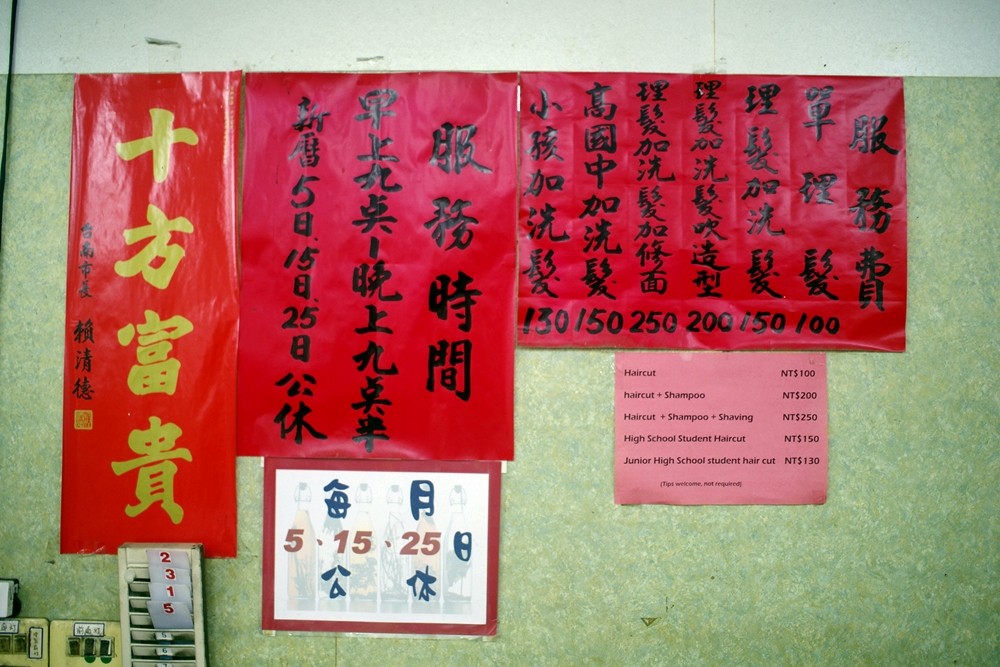 服務費
單理髮 100
理髮加洗髮 150
理髮加洗髮吹造型 200
理髮加洗髮加修面 250
高國中加洗髮 150
小孩加洗髮 130
服務時間
早上九點—晚上九點半
新曆5日、15日、25日公休
十方富貴
台南市長 賴清德
每月
5、15、25日
公休
Haircut NT$100
haircut + Shampoo NT$200
Haircut + Shampoo + Shaving NT$250
High School Student Haircut NT$150
Junior High School student hair cut NT$130
(Tips welcome, not required)
2
3
1
5